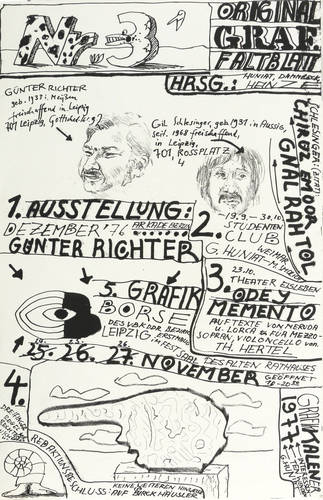 Nr. 3
ORIGINAL
GRAF.
FALTBLATT
HRSG.:
HUNIAT, DAMMBECK
HEINZE
GÜNTER RICHTER
geb. 1933 i. Meißen
freischaffend in Leipzig
701 Leipzig, Gottschedstr. 9
Gil Schlesinger, geb. 1931 in Aussig,
seit 1968 freischaffend,
in Leipzig,
701, ROSSPLATZ
4
SCHLESINGER: (ZITAT)
CHIRGZ EMOOR
GNAL RAH TOL
1. AUSSTELLUNG:
DEZEMBER '76
GÜNTER RICHTER
2.
19.9. – 30.10.
STUDENTEN
CLUB
WEIMAR
G. HUNIAT –
3.
23.10.
THEATER EISLEBEN
ODE Y
MEMENTO
AUF TEXTE VON NERUDA
U. LORCA FÜR MEZZO-
SOPRAN, VIOLONCELLO VON
TH. HERTEL
5. GRAFIK
BÖRSE
DES VBK DDR BEZIRK
LEIPZIG,
FESTSAAL DES ALTEN RATHAUSES
25. 26. 27. NOVEMBER
GEÖFFNET
10-20
4.
GRAFIKKALENDER
1977:
REDAKTIONS
SCHLUSS: AUF BURCKHÄUSLER
KEINE WEITEREN